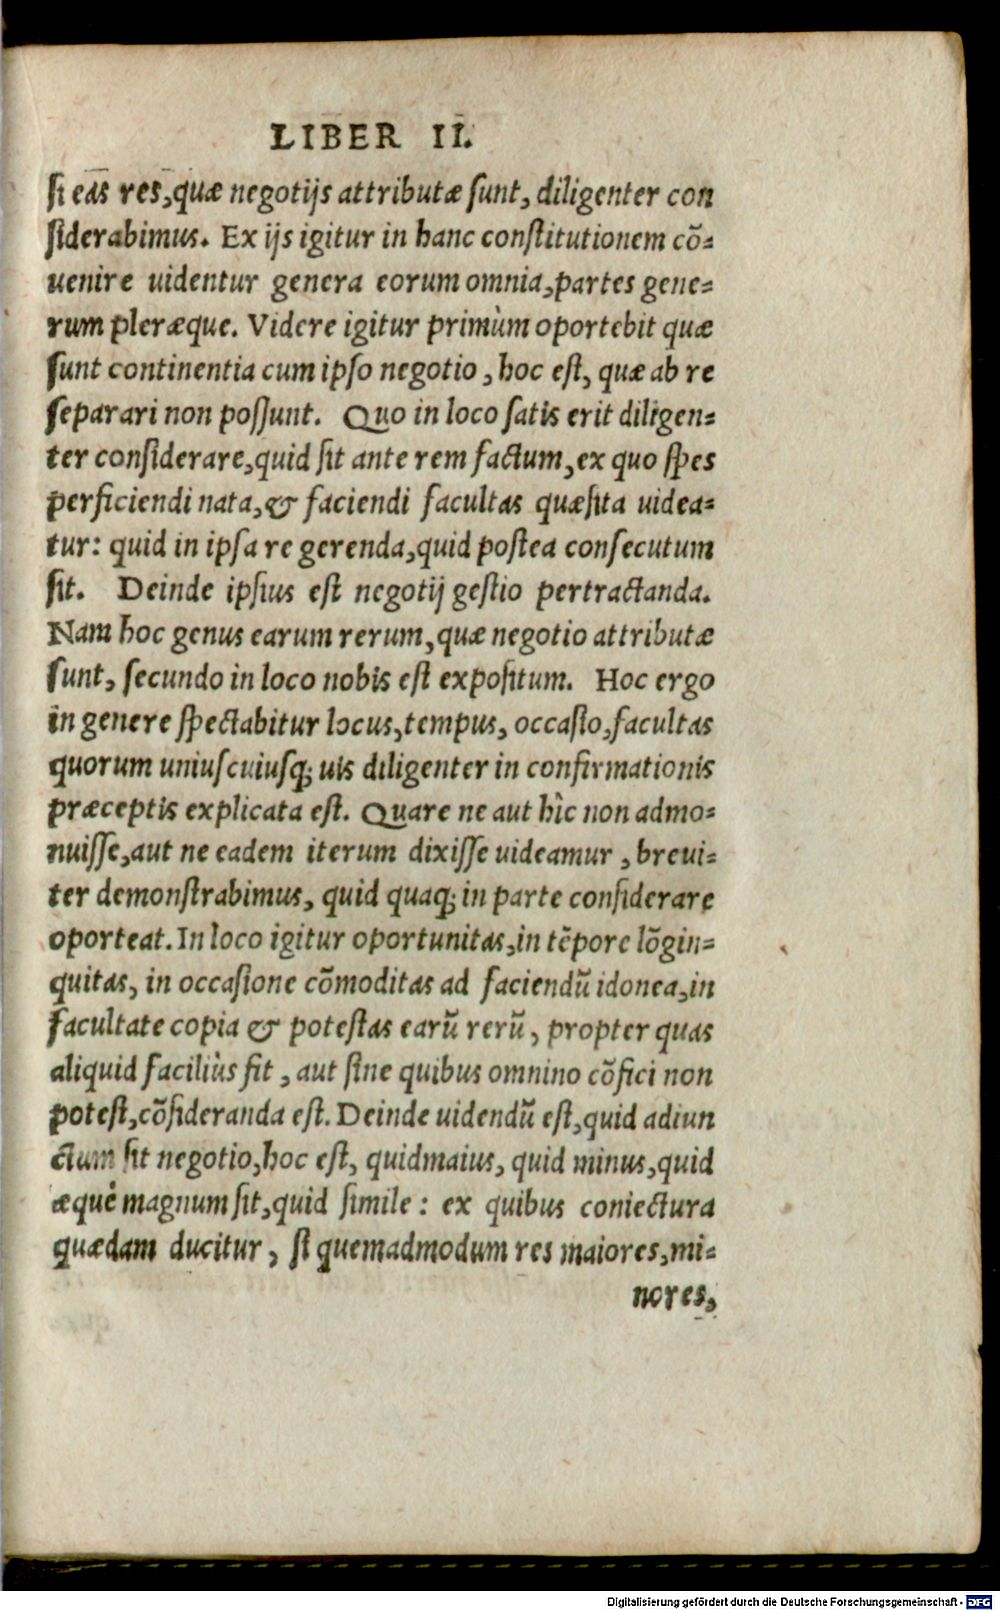 LIBER II.
si eas res, quæ negotijs attributæ sunt, diligenter con
siderabimus. Ex ijs igitur in hanc constitutionem cō-
uenire uidentur genera eorum omnia, partes gene-
rum pleræque. Videre igitur primùm oportebit quæ
sunt continentia cum ipso negotio, hoc est, quæ ab re
separari non possunt. Quo in loco satis erit diligen-
ter considerare, quid sit ante rem factum, ex quo spes
perficiendi nata, & faciendi facultas quæsita uidea-
tur: quid in ipsa re gerenda, quid postea consecutum
sit. Deinde ipsius est negotij gestio pertractanda.
Nam hoc genus earum rerum, quæ negotio attributæ
sunt, secundo in loco nobis est expositum. Hoc ergo
in genere spectabitur locus, tempus, occasio, facultas
quorum uniuscuiusq; uis diligenter in confirmationis
præceptis explicata est. Quare ne aut hîc non admo-
nuisse, aut ne eadem iterum dixisse uideamur, breui-
ter demonstrabimus, quid quaq; in parte considerare
oporteat. In loco igitur oportunitas, in tēpore lōgin-
quitas, in occasione cōmoditas ad faciendū idonea, in
facultate copia & potestas earū rerū, propter quas
aliquid faciliùs fit, aut sine quibus omnino cōfici non
potest, cōsideranda est. Deinde uidendū est, quid adiun
ctum sit negotio, hoc est, quidmaius, quid minus, quid
æquè magnum sit, quid simile: ex quibus coniectura
quædam ducitur, si quemadmodum res maiores, mi-
nores,
Digitalisierung gefördert durch die Deutsche Forschungsgemeinschaft - DFG